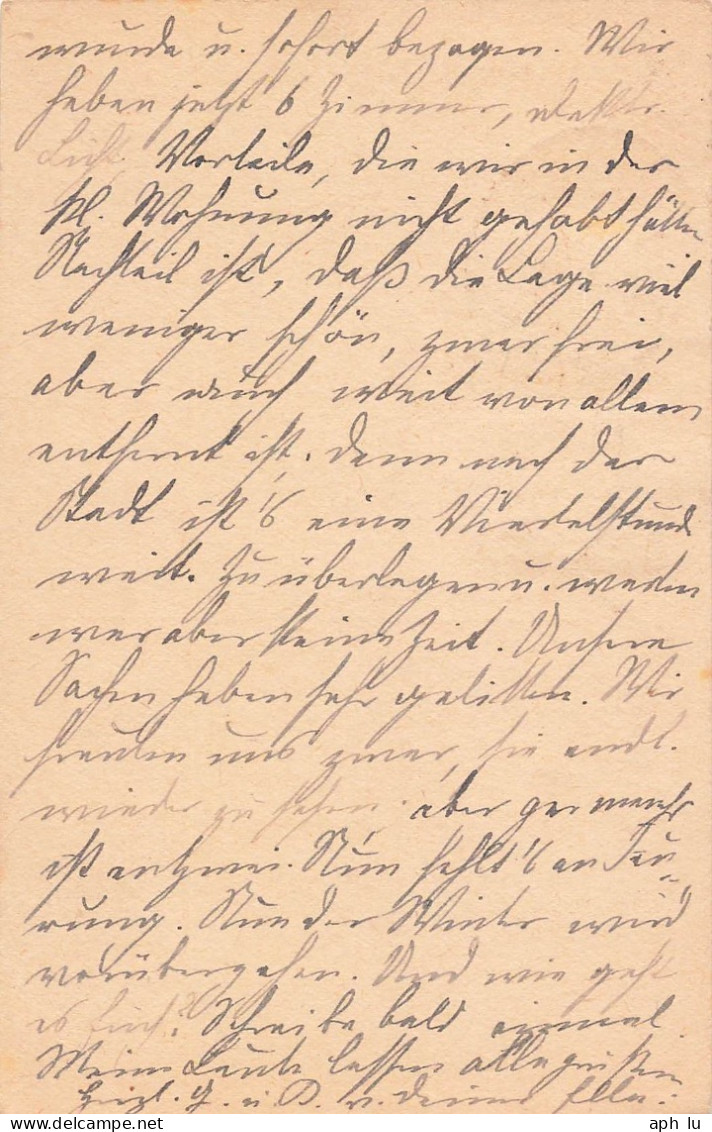 wurde u. sofort bezogen. Wir
haben jetzt 6 Zimmer, elektr.
Licht, Vorteile, die wir in der
kl. Wohnung nicht gehabt hätten
Nachteil ist, daß die Lage viel
weniger schön, zwar frei,
aber auch weit von allem
entfernt ist, denn nach der
Stadt ist's eine Viertelstunde
weit. Zu überlegen u. warten
war aber keine Zeit. Unsere
Sachen haben sehr gelitten. Wir
freuten uns zwar, sie endl.
wieder zu sehen, aber gar manches
ist entzwei. Nun fehlt's an Feu-
rung. Nun der Winter wird
vorübergehen. Und wie geht
es Euch? Schreibe bald einmal.
Meine Leute lassen alle grüßen
Herzl. G. u. D. v. deiner Ella.
aph lu